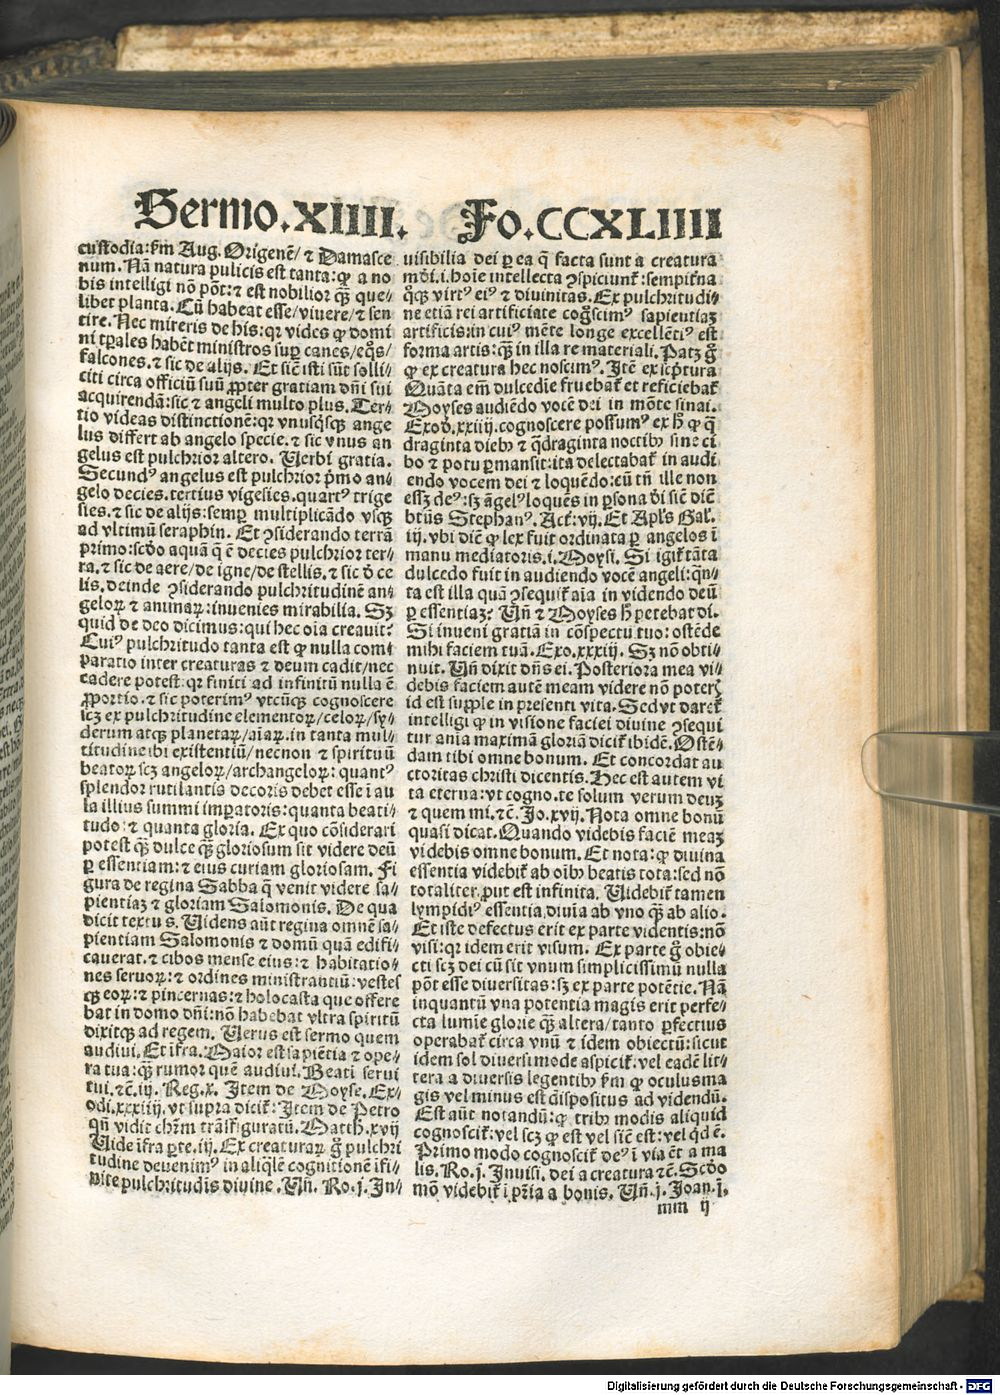 Sermo.XIIII. Fo.CCXLIIII
custodia: s̃m Aug. Origenē/ ⁊ Damasce
num. Nā natura pulicis est tanta: ꝙ a no
bis intelligi nō pōt: ⁊ est nobilior q̄ꝫ que⸗
libet planta. Cū habeat esse/viuere/ ⁊ sen
tire. Nec mireris de his: qr vides ꝙ domi
ni tꝑales habēt ministros suꝑ canes/eq̊s/
falcones. ⁊ sic de alijs. Et siē isti sūt solli⸗
citi circa officiū suū ꝓpter gratiam dn̄i sui
acquirendā: sic ⁊ angeli multo plus. Ter⸗
tio videas distinctionē: qr vnusq̇sqꝫ ange
lus differt ab angelo specie. ⁊ sic vnus an
gelus est pulchrior altero. Uerbi gratia.
Secundꝰ angelus est pulchrior p̄mo an⸗
gelo decies. tertius vigesies. quartꝰ trige
sies. ⁊ sic de alijs: semꝑ multiplicādo vsqꝫ
ad vltimū seraphin. Et ꝯsiderando terrā
primo: scd̄o aquā q̄ ē decies pulchrior ter⸗
ra. ⁊ sic de aere/de igne/de stellis. ⁊ sic d̄ ce
lis. deinde ꝯsiderando pulchritudinē an⸗
geloꝝ ⁊ animaꝝ: inuenies mirabilia. Sꝫ
quid de deo dicimus: qui hec oīa creauit?
Cuiꝰ pulchritudo tanta est ꝙ nulla com⸗
paratio inter creaturas ⁊ deum cadit/nec
cadere potest: qr finiti ad infinitū nulla ē
ꝓportio. ⁊ sic poterimꝰ vtcūqꝫ cognoscere
scꝫ ex pulchritudine elementoꝝ/celoꝝ/sy⸗
derum atqꝫ planetaꝝ/aīaꝝ. in tanta mul⸗
titudine ibi existentiū/necnon ⁊ spirituū
beatoꝝ scꝫ angeloꝝ/archangeloꝝ: quantꝰ
splendor rutilantis decoris debet esse ī au
la illius summi imꝑatoris: quanta beati⸗
tudo: ⁊ quanta gloria. Ex quo cōsiderari
potest q̄ꝫ dulce q̄ꝫ gloriosum sit videre deū
ꝑ essentiam: ⁊ eius curiam gloriosam. Fi
gura de regina Sabba q̄ venit videre sa⸗
pientiaꝫ ⁊ gloriam Salomonis. De qua
dicit textus. Uidens aūt regina omnē sa⸗
pientiam Salomonis ⁊ domū quā edifi⸗
cauerat. ⁊ cibos mense eius: ⁊ habitatio⸗
nes seruoꝝ: ⁊ ordines ministrantiū: vestes
qꝫ eoꝝ: ⁊ pincernas: ⁊ holocasta que offere
bat in domo dn̄i: nō habebat vltra spiritū
dixitqꝫ ad regem. Uerus est sermo quem
audiui. Et īfra. Maior est sapīetia ⁊ ope⸗
ra tua: q̄ꝫ rumor quē audiui. Beati serui
tui. ⁊c̄. iij. Reg. x. Item de Moyse. Ex⸗
odi. xxxiiij. vt supra dicit̃: Item de Petro
qn̄ vidit chr̄m trāsfiguratū. Matth. xvij
Uide īfra ꝑte. iij. Ex creaturaꝝ g̊ pulchri
tudine deuenimꝰ in aliq̄lē cognitionē īfi⸗
nite pulchritudīs diuine. Un̄. Ro. j. In⸗
uisibilia dei ꝑ ea q̄ facta sunt a creatura
mūdi. i. hoīe intellecta ꝯspiciunt̃: sempit̃na
q̊qꝫ virtꝰ eiꝰ ⁊ diuinitas. Ex pulchritudi⸗
ne etiā rei artificiate cog̊scimꝰ sapientiaꝫ
artificis: in cuiꝰ mēte longe excellētiꝰ est
forma artis: q̄ꝫ in illa re materiali. Patꝫ g̊
ꝙ ex creatura hec noscimꝰ. Itē ex sc̄ptura
Quāta em̄ dulcedīe fruebat̃ et reficiebat̃
Moyses audiēdo vocē dei in mōte sinai.
Exod̄. xxiiij. cognoscere possumꝰ ex ħ ꝙ q̄
draginta diebꝰ ⁊ q̄draginta noctibꝰ sine ci
bo ⁊ potu ꝑmansit: ita delectabat̃ in audi
endo vocem dei ⁊ loquēdo: cū tn̄ ille non
essꝫ deꝰ: sꝫ āgelꝰ loquēs in ꝑsona d̄i siē diē
btūs Stephanꝰ. Act̃. vij. Et Apl̄s Gal̃.
iij. vbi diē ꝙ lex fuit ordinata ꝑ angelos ī
manu mediatoris. i. Moysi. Si igit̃ tāta
dulcedo fuit in audiendo vocē angeli: q̄n⸗
ta est illa quā ꝯsequit̃ aīa in videndo deū
ꝑ essentiaꝫ? Un̄ ⁊ Moyses ħ petebat di.
Si inueni gratiā in cōspectu tuo: ostēde
mihi faciem tuā. Exo. xxxiij. Sꝫ nō obti⸗
nuit. Un̄ dixit dn̄s ei. Posteriora mea vi⸗
debis faciem autē meam videre nō poteris
id est supple in presenti vita. Sed vt daret̃
intelligi ꝙ in visione faciei diuine ꝯsequi
tur anīa maximā gloriā dicit̃ ibidē. Ostē⸗
dam tibi omne bonum. Et concordat au
ctoritas christi dicentis. Hec est autem vi
ta eterna: vt cogno. te solum verum deuꝫ
⁊ quem mi. ⁊c̄. Jo. xvij. Nota omne bonū
quasi dicat. Quando videbis faciē meaꝫ
videbis omne bonum. Et nota: ꝙ diuina
essentia videbit̃ ab oībꝰ beatis tota: sed nō
totaliter, ꝓut est infinita. Uidebit̃ tamen
lympidiꝰ essentia diuīa ab vno q̄ꝫ ab alio.
Et iste defectus erit ex parte videntis: nō
visi: qr idem erit visum. Ex parte g̊ obie⸗
cti scꝫ dei cū sit vnum simplicissimū nulla
pōt esse diuersitas: sꝫ ex parte potētie. Nā
inquantū vna potentia magis erit perfe⸗
cta lumīe glorie q̄ꝫ altera/tanto ꝑfectius
operabat̃ circa vnū ⁊ idem obiectū: sicut
idem sol diuersimode aspicit̃. vel eadē lit⸗
tera a diuersis legentibꝰ s̃m ꝙ oculus ma
gis vel minus est dispositus ad videndū.
Est aūt notandū: ꝙ tribꝰ modis aliquid
cognoscit̃: vel scꝫ ꝙ est vel siē est: vel qd ē.
Primo modo cognoscit̃ deꝰ ī via ēt a ma
lis. Ro. j. Inuisi. dei a creatura ⁊c̄. Scd̄o
mō videbit̃ ī pr̄ia a bonis. Un̄. j. Joan. j.
mm ij
Digitalisierung gefördert durch die Deutsche Forschungsgemeinschaft - DFG